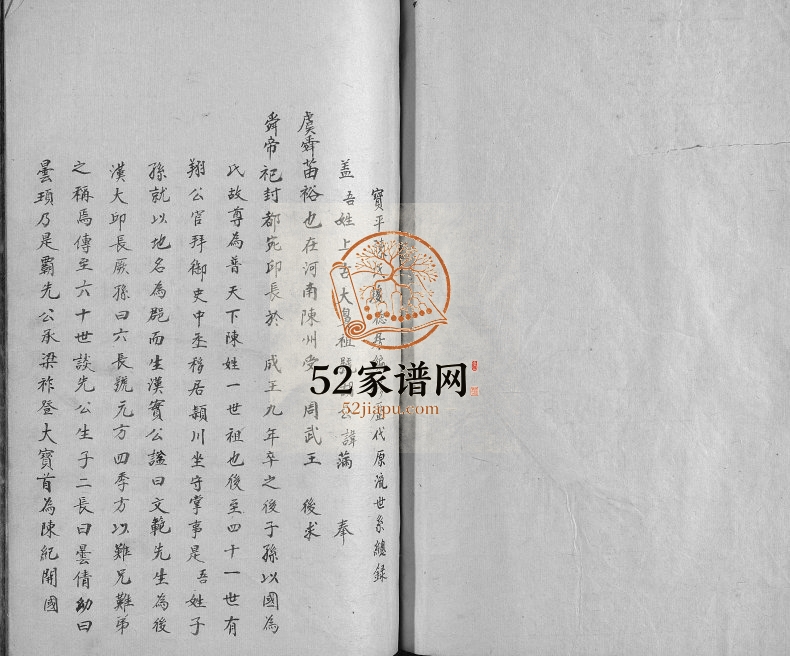 寶平
歷代原流世系總錄
盖 吾姓上古大 祖 公諱滿 奉
虞舜苗裕也在河南陳州 周武王 後求
舜帝祀封都宛邱長於 成王九年卒之後子孫以國為
氏故尊為普天下陳姓一世祖也後至四十一世有
翔公官拜御史中丞移居潁川坐守掌事是吾姓子
孫就以地名為郡而生漢實公謚曰文範先生為後
漢大邱長厥孫曰六長號元方四季方以難兄難弟
之稱焉傳至六十世談先公生子二長曰曇倩幼曰
曇頊乃是霸先公承梁祚登大寳首為陳紀開國
52家谱网
52jiapu.com